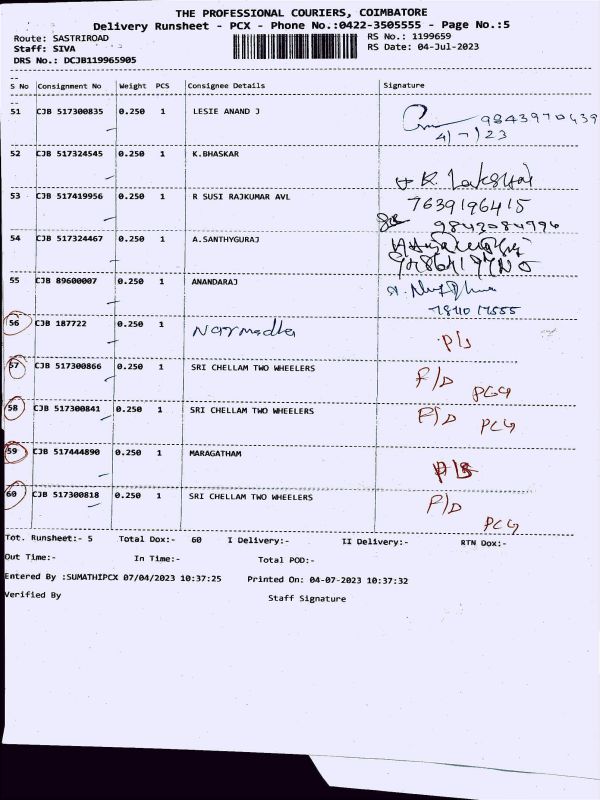 THE PROFESSIONAL COURIERS, COIMBATORE
Delivery Runsheet - PCX - Phone No.:0422-3505555 - Page No.:5
Route: SASTRIROAD RS No.: 1199659
Staff: SIVA RS Date: 04-Jul-2023
DRS No.: DCJB119965905
S No Consignment No Weight PCS Consignee Details Signature
51 CJB 517300835 0.250 1 LESIE ANAND J 9843970439
4/7/23
52 CJB 517324545 0.250 1 K.BHASKAR
53 CJB 517419956 0.250 1 R SUSI RAJKUMAR AVL 7639196415
54 CJB 517324467 0.250 1 A.SANTHYGURAJ 9843084996
55 CJB 89600007 0.250 1 ANANDARAJ
56 CJB 187722 0.250 1 Narmadha
57 CJB 517300866 0.250 1 SRI CHELLAM TWO WHEELERS F/D
58 CJB 517300841 0.250 1 SRI CHELLAM TWO WHEELERS F/D
59 CJB 517444890 0.250 1 MARAGATHAM
60 CJB 517300818 0.250 1 SRI CHELLAM TWO WHEELERS F/D
Tot. Runsheet:- 5 Total Dox:- 60 I Delivery:- II Delivery:- RTN Dox:-
Out Time:- In Time:- Total POD:-
Entered By :SUMATHIPCX 07/04/2023 10:37:25 Printed On: 04-07-2023 10:37:32
Verified By Staff Signature